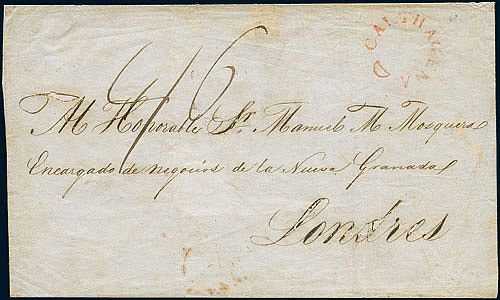 CARTHAGENA
4/6
Al Honorable Sr. Manuel M Mosquera
Encargado de negocios de la Nueva Granada
Londres